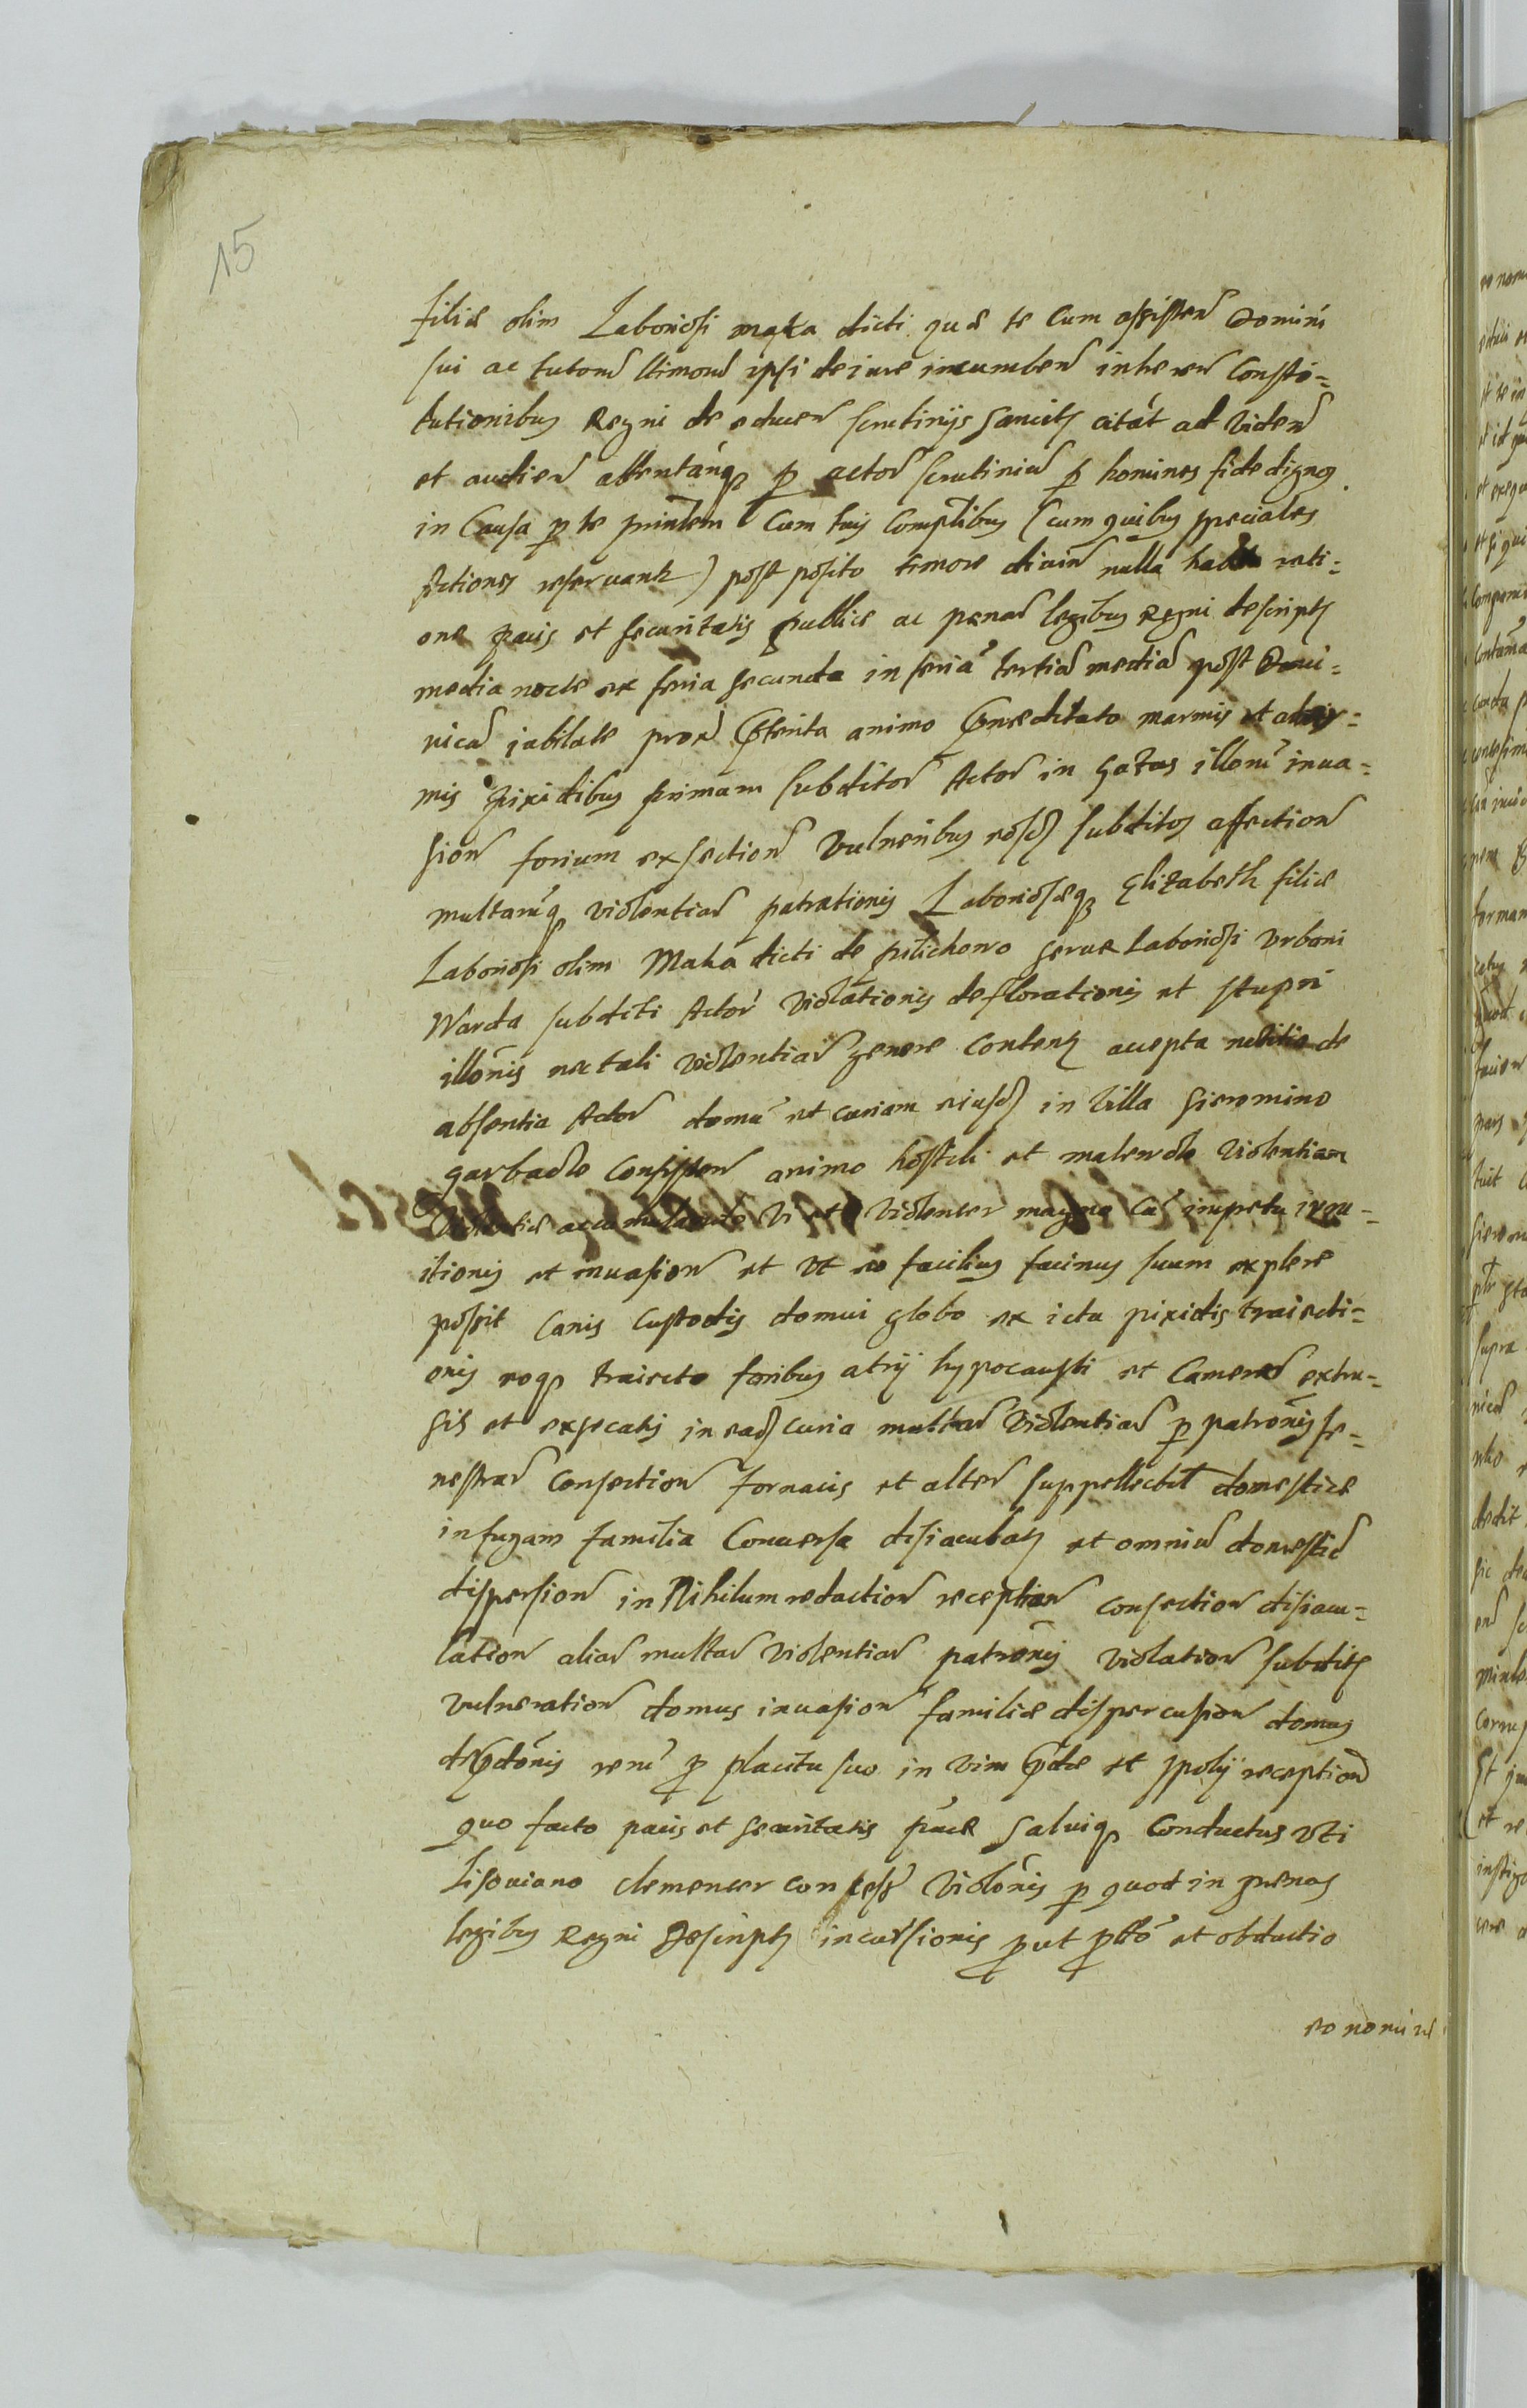 15
filiæ olim Laboriosi maka dicti quæ te Cum assisten Domini
sui ac tutoru stimoru ipsi de iure incumben inheren Consti=
tutionibus Regni de educen scrutinijs sancits citat ad viden
et audien attentanq p actor scrutiniu p homines fide dignos
in Causa p te printem Cum tuis Complibus (cum quibus speciales
actiones reservants) post posito timore divin nulla habita rati=
one pacis et securitatis publicæ ac penar legibus Regni descripts
media nocte ex feria secunda in feria tertia media post Domi=
nica iubilate prox pterita animo pmeditato
mis pixidibus primam subditor Actor in Gazas illoru inva=
sion forium exsection vulneribus eosd subditos affection
multaruq violentiar patrationis Laboriosæq Elizabeth filiæ
Laboriosi olim Maka dicti de pilichowo servæ Laboriosi Urbani
Warda subditi Actor violationis deflorationis et stupri
illonis nec tali violentiar genere Contents accepta notitia de
absentia Actor domu et curiam eiusd in Villa Sieromino
garbaole Consisten animo hostili et malevolo violentiam
violentiæ accumulando Vi et violenter magno Ca impetu irru=
itionis et invasion et Ut eo facilius facinus suum explere
possit Canis Custodis domui globo ex ictu pixidis traiecti=
onis eoq traiecto foribus atrij hypocausti et Camerar extru=
sis et exsecatis in ead curia multar violentiar p patronis fe=
nestrar Consection fornacis et alter suppellectil domesticæ
in fugam familia Conversa disiaculats et omniu domestic
dispersion in Nihilum redaction reception consection disiacu=
lation aliar multar violentiar patronis violation subdits
vulneration domus invasion familiæ dispercusion domus
dpdonis reru p placitu suo in vim pdæ et spolij reception
quo facto pacis et securitatis pucæ salviq Conductus Uti
clementer concess violonis p quod in penas
legibus Regni descripts incursionis put pltō et obductio
eo nomine